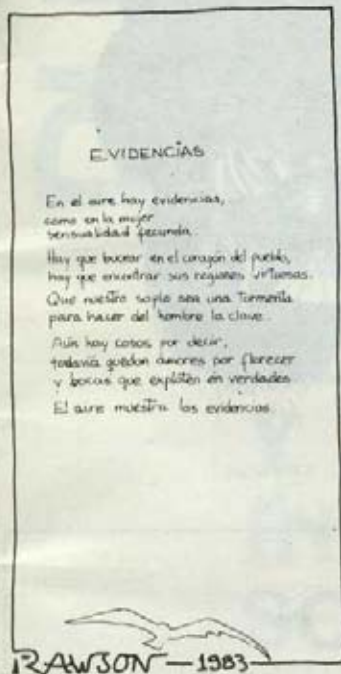 EVIDENCIAS
En el aire hay evidencias,
como en la mujer
sensualidad fecunda.
Hay que bucear en el corazón del pueblo,
hay que encontrar sus regiones virtuosas.
Que nuestro soplo sea una tormenta
para hacer del hombre la clave.
Aún hay cosas por decir,
todavía quedan amores por florecer
y bocas que exploten en verdades
El aire muestra las evidencias.
RAWSON — 1983